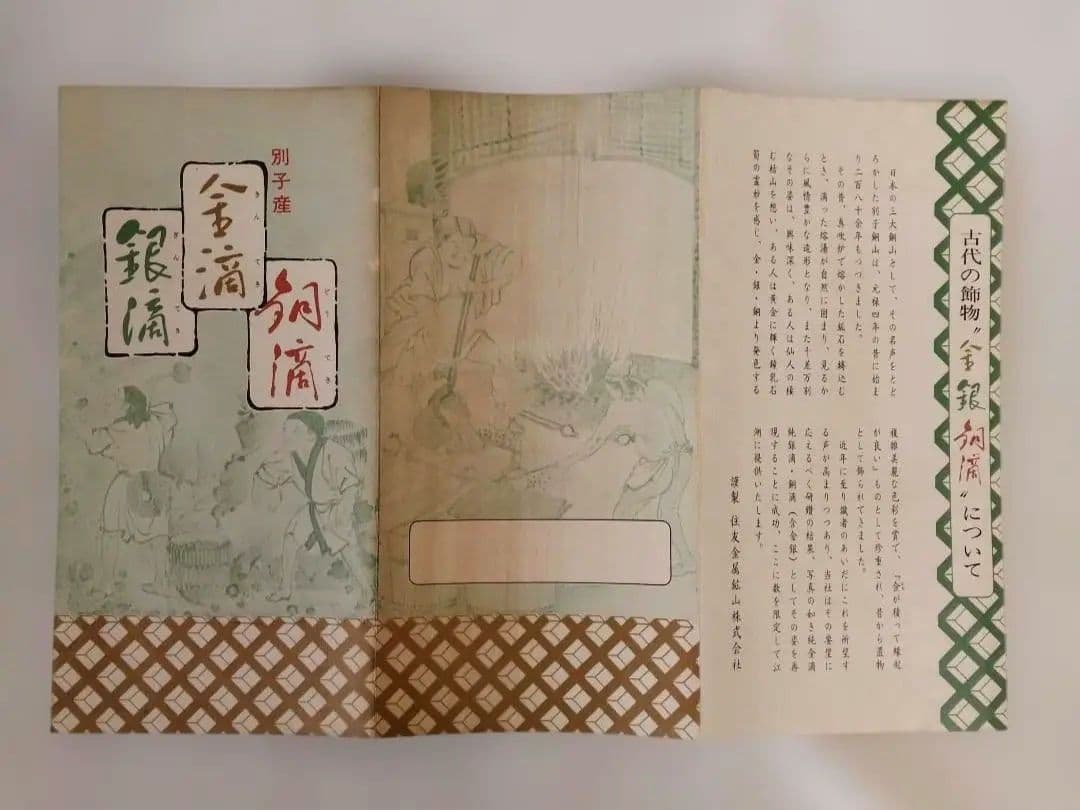 別子産
金滴
きんてき
銀滴
ぎんてき
銅滴
どうてき
古代の飾物〝金銀銅滴〟について
日本の三大銅山として、その名声をとど
ろかした別子銅山は、元禄四年の昔に始ま
り二百八十余年もつづきました。
その昔、真吹炉で熔かした鉱石を鋳込む
とき、滴った熔湯が自然に固まり、見るか
らに風情豊かな造形となり、また千差万別
なその姿は、興味深く、ある人は仙人の棲
む枯山を想い、ある人は黄金に輝く鍾乳石
筍の霊妙を感じ、金・銀・銅より発色する
複雑美麗な色彩を賞で、『金が積って縁起
が良い』ものとして珍重され、昔から置物
として飾られてきました。
近年に至り識者のあいだにこれを所望す
る声が高まりつつあり、当社はその要望に
応えるべく研鑽の結果、写真の如き純金滴
純銀滴・銅滴(含金銀)としてその姿を再
現することに成功、ここに数を限定して江
湖に提供いたします。
謹製 住友金属鉱山株式会社